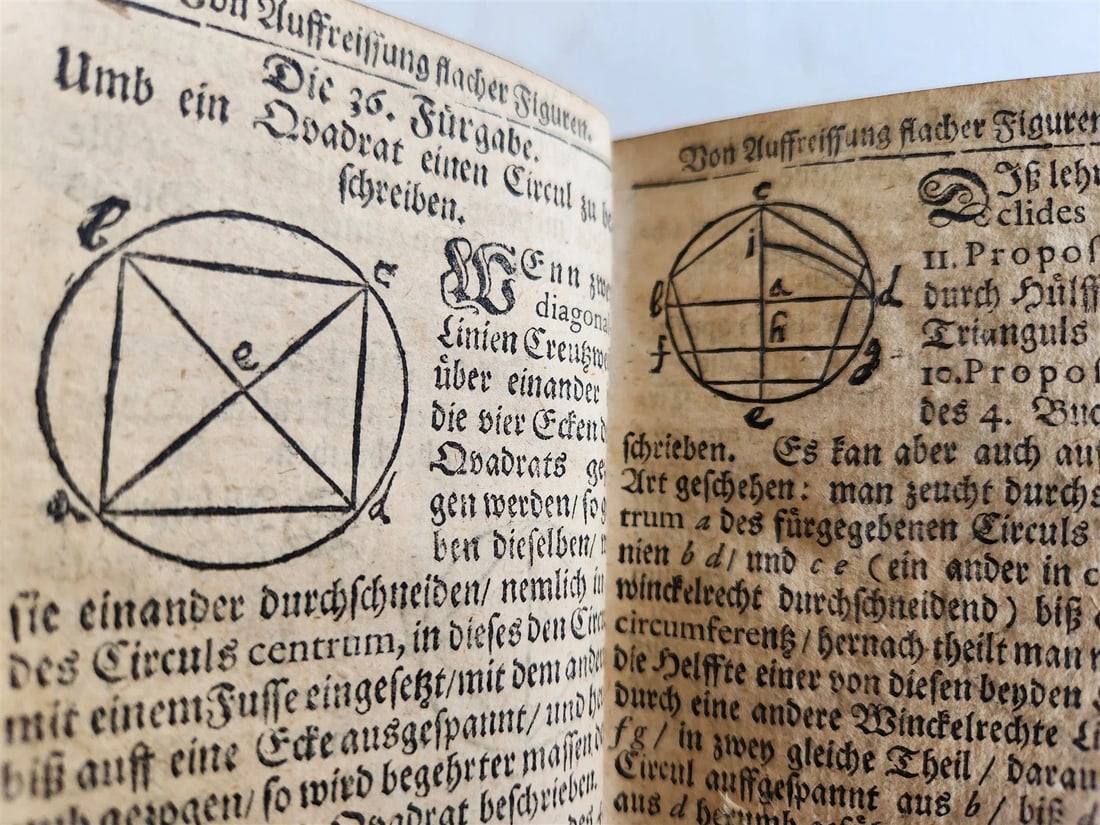 Von Auffreissung flacher Figuren.
Die 36. Fürgabe.
Umb ein Qvadrat einen Circul zu be
schreiben.
WEnn zwe
diagona
Linien Creutzwe
über einander
die vier Ecken d
Qvadrats ge
gen werden/ so g
ben dieselben/
sie einander durchschneiden/ nemlich in
des Circuls centrum, in dieses den Circu
mit einem Fusse eingesetzt/ mit dem ander
biß auff eine Ecke ausgespannt/ und he
gezogen/ so wird begehrter massen
Qvadrat beschrieben.
b
c
e
a
d
Von Auffreissung flacher Figuren
DIß lehr
clides
11. Propos
durch Hülff
Trianguls
10. Propos
des 4. Buc
c
i
b
a
d
h
f
g
e
schrieben. Es kan aber auch auf
Art geschehen: man zeucht durchs
trum a des fürgegebenen Circuls
nien b d/ und c e (ein ander in c
winckelrecht durchschneidend) biß
circumferentz/ hernach theilt man
die Helffte einer von diesen beyden
durch eine andere Winckelrechte Li
f g/ in zwey gleiche Theil/ darau
Circul auffgespannt aus b/ biß d
aus d herumb